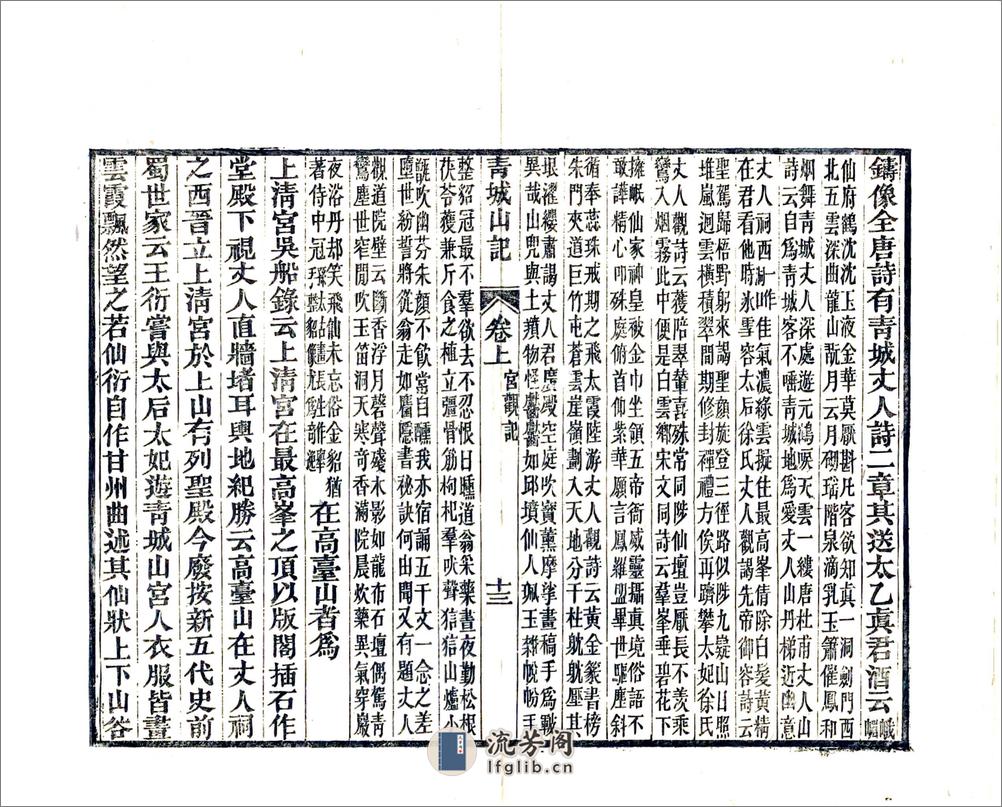 鑄像全唐詩有青城丈人詩二章其送太乙眞君酒云峨嵋
仙府鶴沈沈玉液金華莫厭斟凡客欲知眞一洞劍門西
北五雲深曲龍山翫月云月砌瑤階泉滴乳玉簫催鳳和
烟舞青城丈人深處遊元鴻唳天雲一縷唐杜甫丈人山
詩云自爲青城客不唾青城地爲愛丈人山丹梯近幽意
丈人祠西一咋佳氣濃綠雲擬住最高峯倩除白髮黃精
在君看他時氷雪容太后徐氏丈人觀謁先帝御容詩云
聖駕歸梧野躬來謁聖顏旋登三徑路似陟九嶷山日照
堆嵐迥雲橫積翠間期修封禪禮方俟再躋攀太妃徐氏
丈人觀詩云獲陪翠輦喜殊常同陟仙壇豈厭長不羡乘
鸞入烟霧此中便是白雲鄉宋文同詩云羣峯垂碧花下
擁岷仙家神皇被金巾坐領五帝衙威靈攝眞境俗語不
敢譁精心叩殊庭俯首仰紫華願言鳳羅盟畢世驅塵斜
循奉蕊珠戒期之飛太霞陸游丈人觀詩云黃金篆書榜
朱門夾道巨竹屯蒼雲崖嶺劃入天地分千柱躭躭壓其
垠濯纓肅謁丈人君廣殿空庭吹寶薰摩挲畫稿手爲皸
異哉山兕與土獖物怪如邱墳仙人佩玉雜帨帉王
青城山記
卷上 宮觀記
十三
整貂冠最不羣欲去不忍恨日曛道翁采藥晝夜勤松根
茯苓獲兼斤食之植立彊骨筋枸杞羣吠聲狺狺山爐小
甌吹幽芬朱顏不飲常自醺我亦宿誦五千文一念之差
墮世紛誓將從翁走如麕隱書秘訣何由聞又有題丈人
觀道院壁云斷香浮月磬聲殘木影如龍布石壇偶駕青
鸞塵世窄閒吹玉笛洞天寒奇香滿院晨炊藥異氣穿巖
夜浴丹却笑飛仙未忘俗金貂猶
著侍中冠
在高臺山者爲
上清宮吳船錄云上清宮在最高峯之頂以版閣插石作
堂殿下視丈人直牆堵耳輿地紀勝云高臺山在丈人祠
之西晋立上清宮於上山有列聖殿今廢按新五代史前
蜀世家云王衍嘗與太后太妃遊青城山宮人衣服皆畫
雲霞飄然望之若仙衍自作甘州曲述其仙狀上下山谷
流芳阁
lfglib.cn